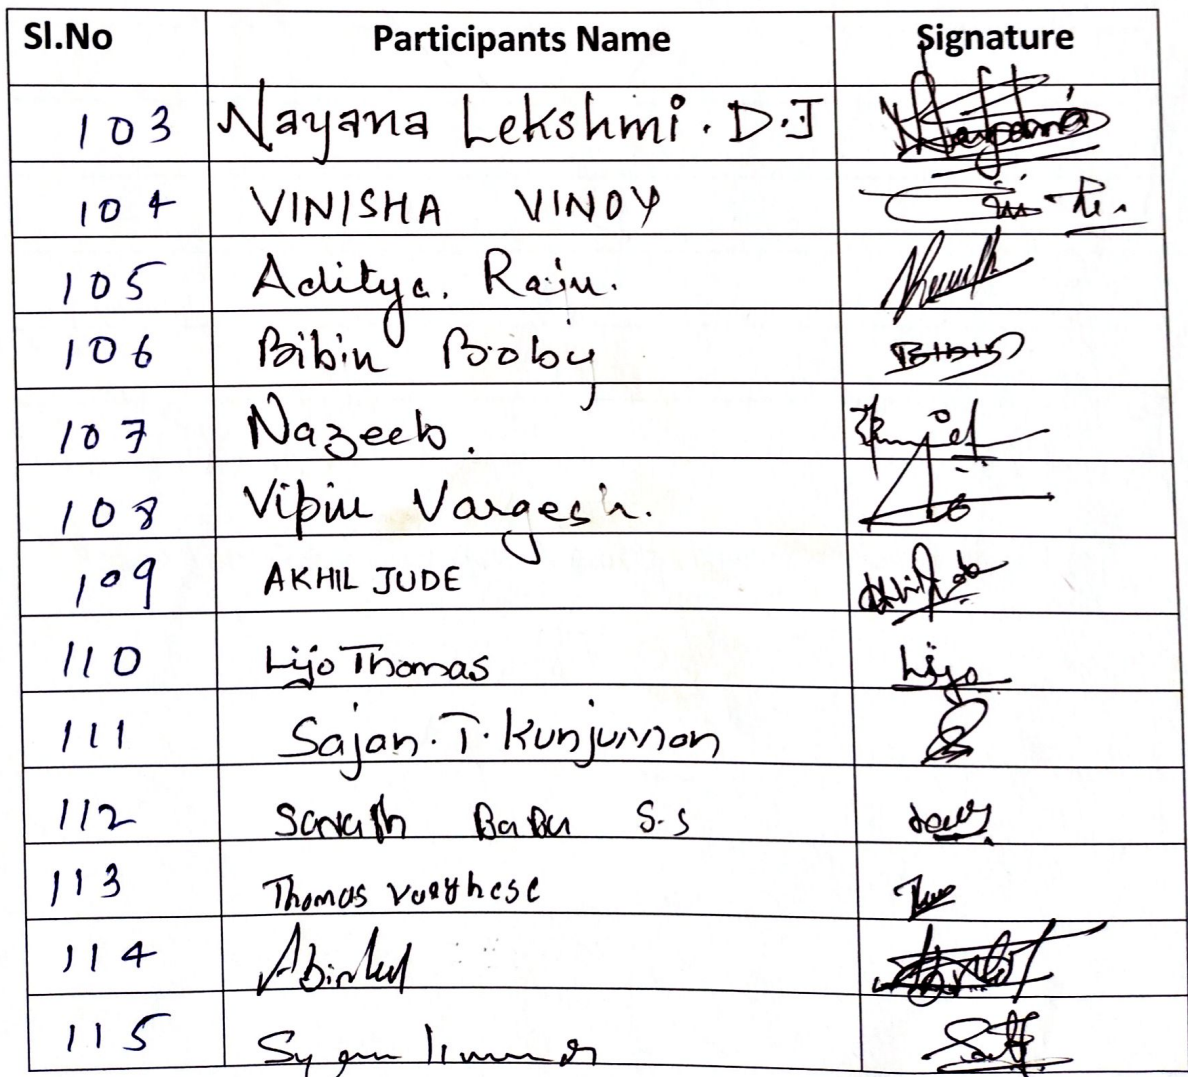 Sl.No Participants Name Signature
103 Nayana Lekshmi. D.J
104 VINISHA VINOY
105 Aditya. Raju.
106 Bibin Booby Bibin
107 Nazeeb.
108 Vipin Vargesh.
109 AKHIL JUDE
110 Lijo Thomas Lijo
111 Sajan. T. Kunjumon
112 Babu S.S
113 Thomas Varghese
114
115